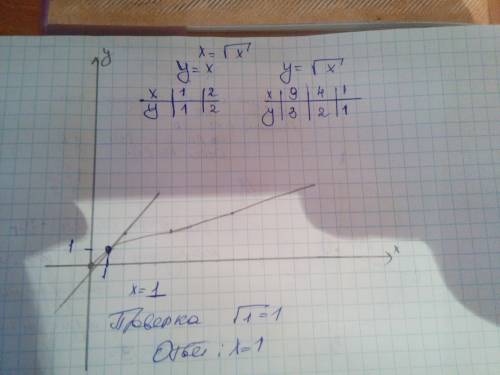 x = √x
y = x y = √x
x | 1 | 2 x | 9 | 4 | 1
y | 1 | 2 y | 3 | 2 | 1
y
1
x
1
x = 1
Проверка √1 = 1
Ответ: x = 1